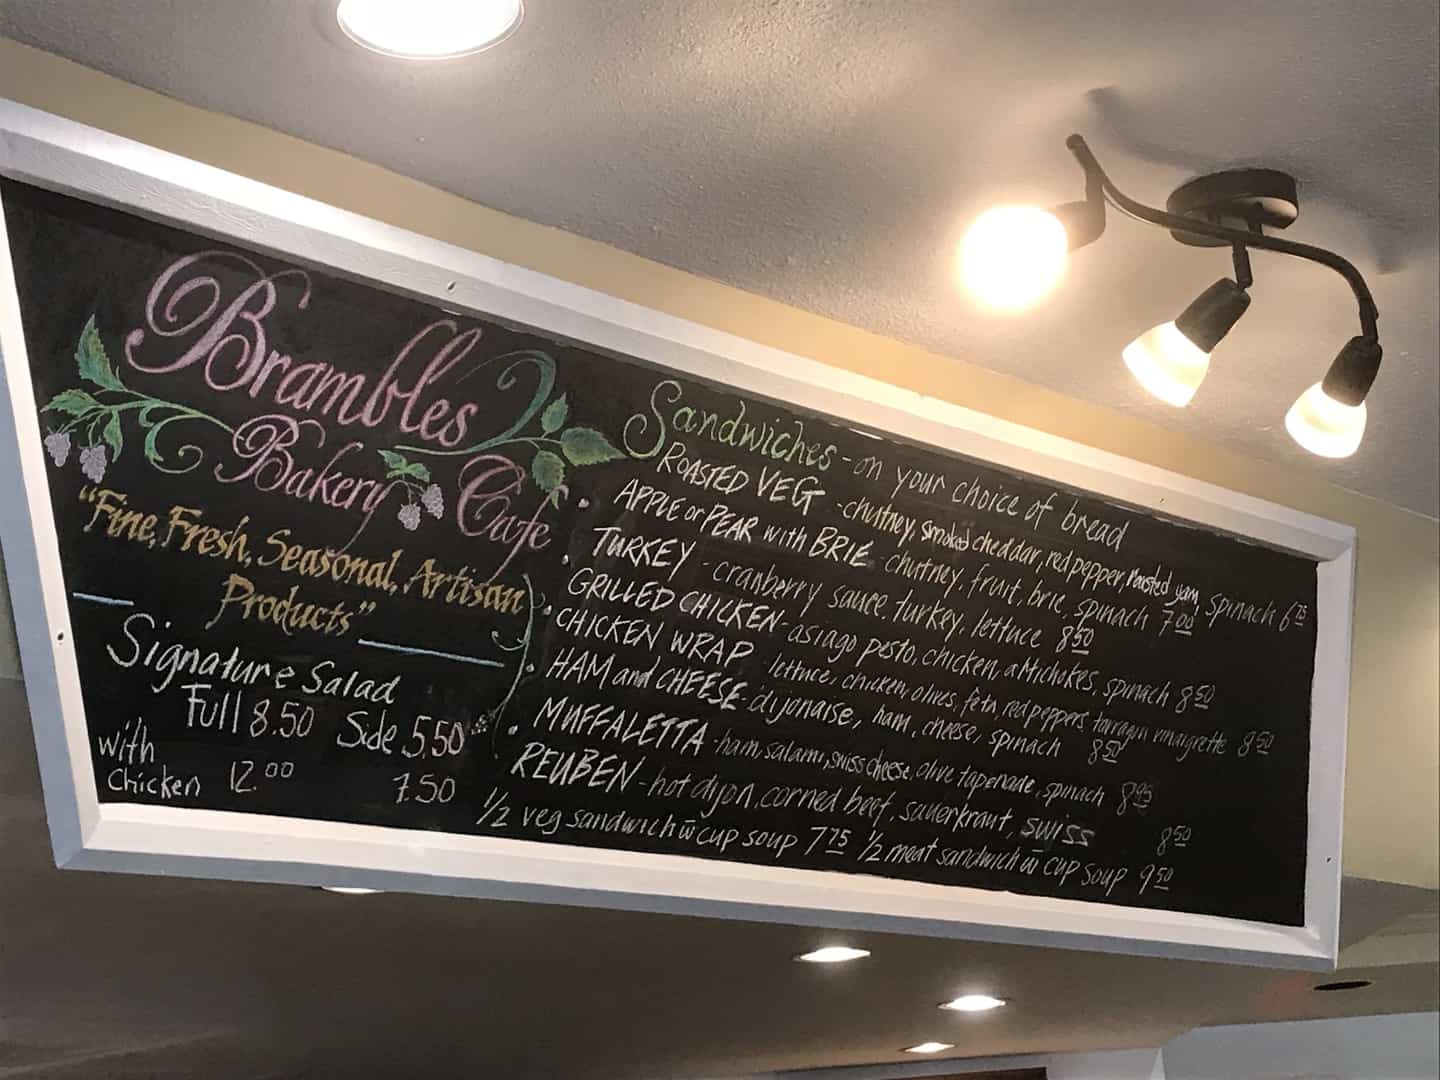 Brambles
Bakery Cafe
"Fine, Fresh, Seasonal, Artisan
Products"
Signature Salad
Full 8.50 Side 5.50
with
chicken 12.00 7.50
Sandwiches - on your choice of bread
ROASTED VEG - chutney, smoked cheddar, red pepper, roasted yam, spinach 6 75
• APPLE or PEAR with BRIE - chutney, fruit, brie, spinach 7 00
• TURKEY - cranberry sauce, turkey, lettuce 8 50
• GRILLED CHICKEN - asiago pesto, chicken, artichokes, spinach 8 50
CHICKEN WRAP - lettuce, chicken, olives, feta, red peppers, tarragon vinaigrette 8 50
• HAM and CHEESE - dijonaise, ham, cheese, spinach 8 50
• MUFFALETTA - ham, salami, swiss cheese, olive tapenade, spinach 8 95
REUBEN - hot dijon, corned beef, sauerkraut, swiss 8 50
1/2 veg sandwich w cup soup 7 75 1/2 meat sandwich w cup soup 9 50